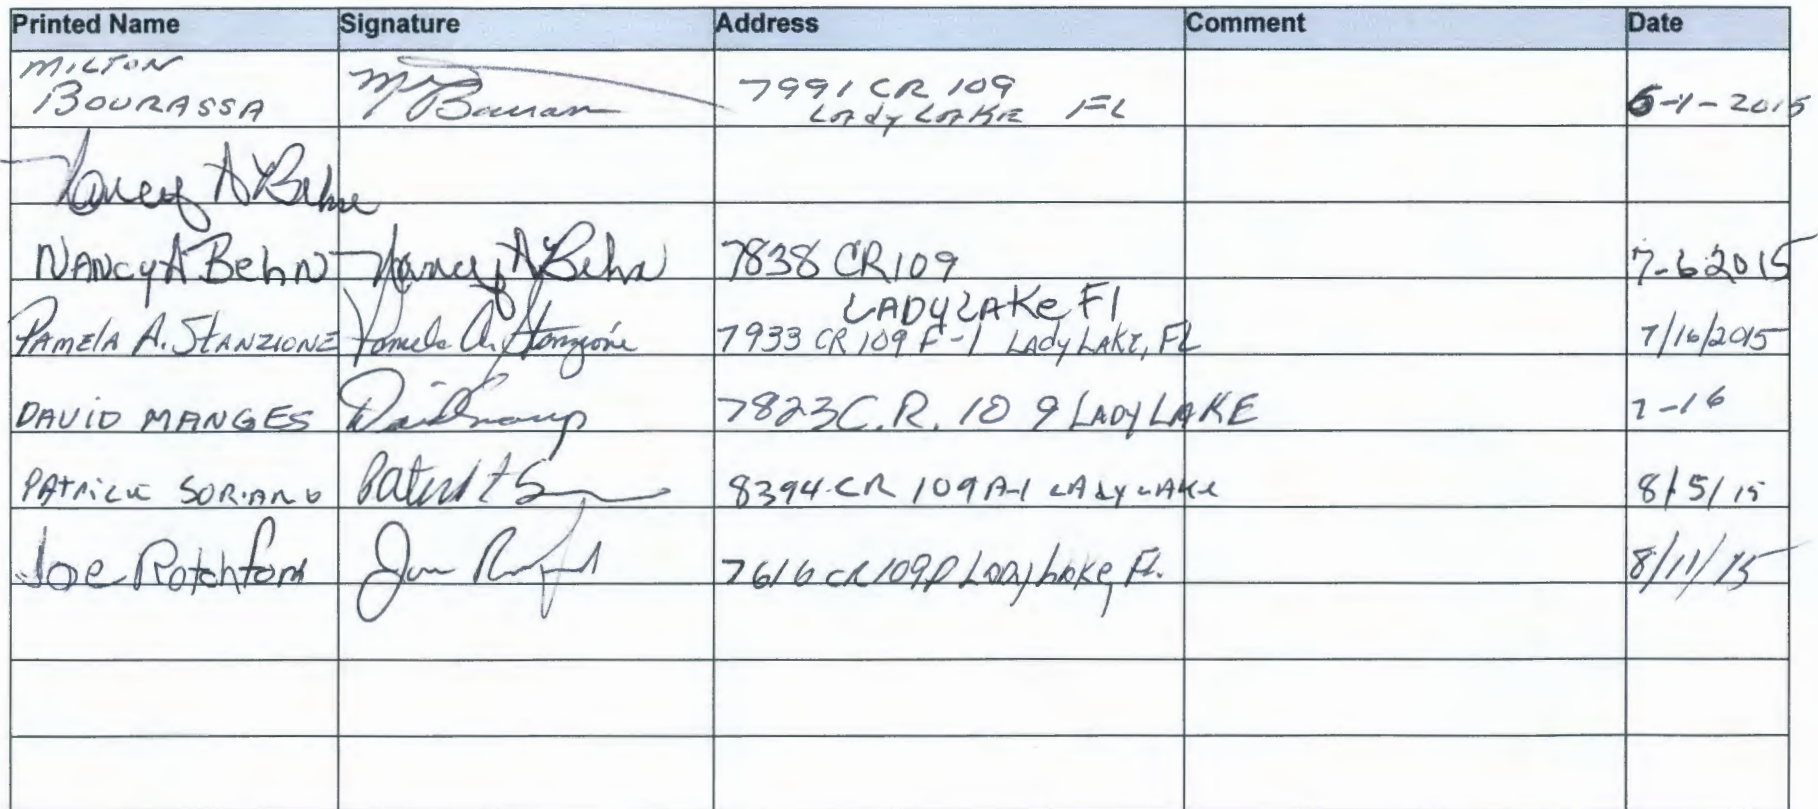 Printed Name Signature Address Comment Date
MILTON
BOURASSA 7991 CR 109
LADY LAKE FL 6-1-2015
Nancy A Behn
NANCY A Behn Nancy A Behn 7838 CR 109
LADY LAKe Fl 7-6-2015
PAMELA A. STANZIONE Pamela A. Stanzione 7933 CR 109 F-1 LADY LAKE, FL 7/16/2015
DAVID MANGES 7823 C.R. 109 LADY LAKE 7-16
SORIANO 8394 CR 109 A-1 LADY LAKE 8/5/15
Joe Rotchford 7616 CR 109 Lady Lake, Fl. 8/11/15